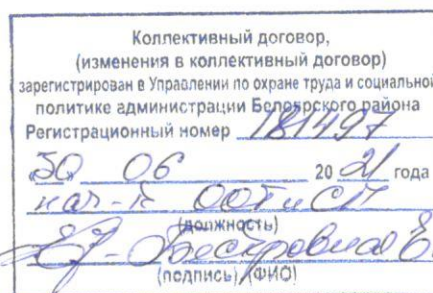 Коллективный договор,
(изменения в коллективный договор)
зарегистрирован в Управлении по охране труда и социальной
политике администрации Белоярского района
Регистрационный номер 181497
30 06 20 21 года
нач-к ООТиСП
(должность)
Бескровная Е.
(подпись) (ФИО)